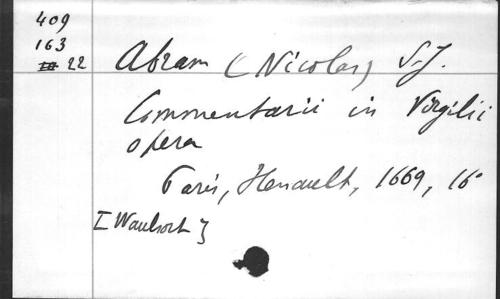 409
163
22
Abram (Nicolas) S.J.
Commentarii in Virgilii
opera
Paris, Henault, 1669, 16°
[Waulsort]